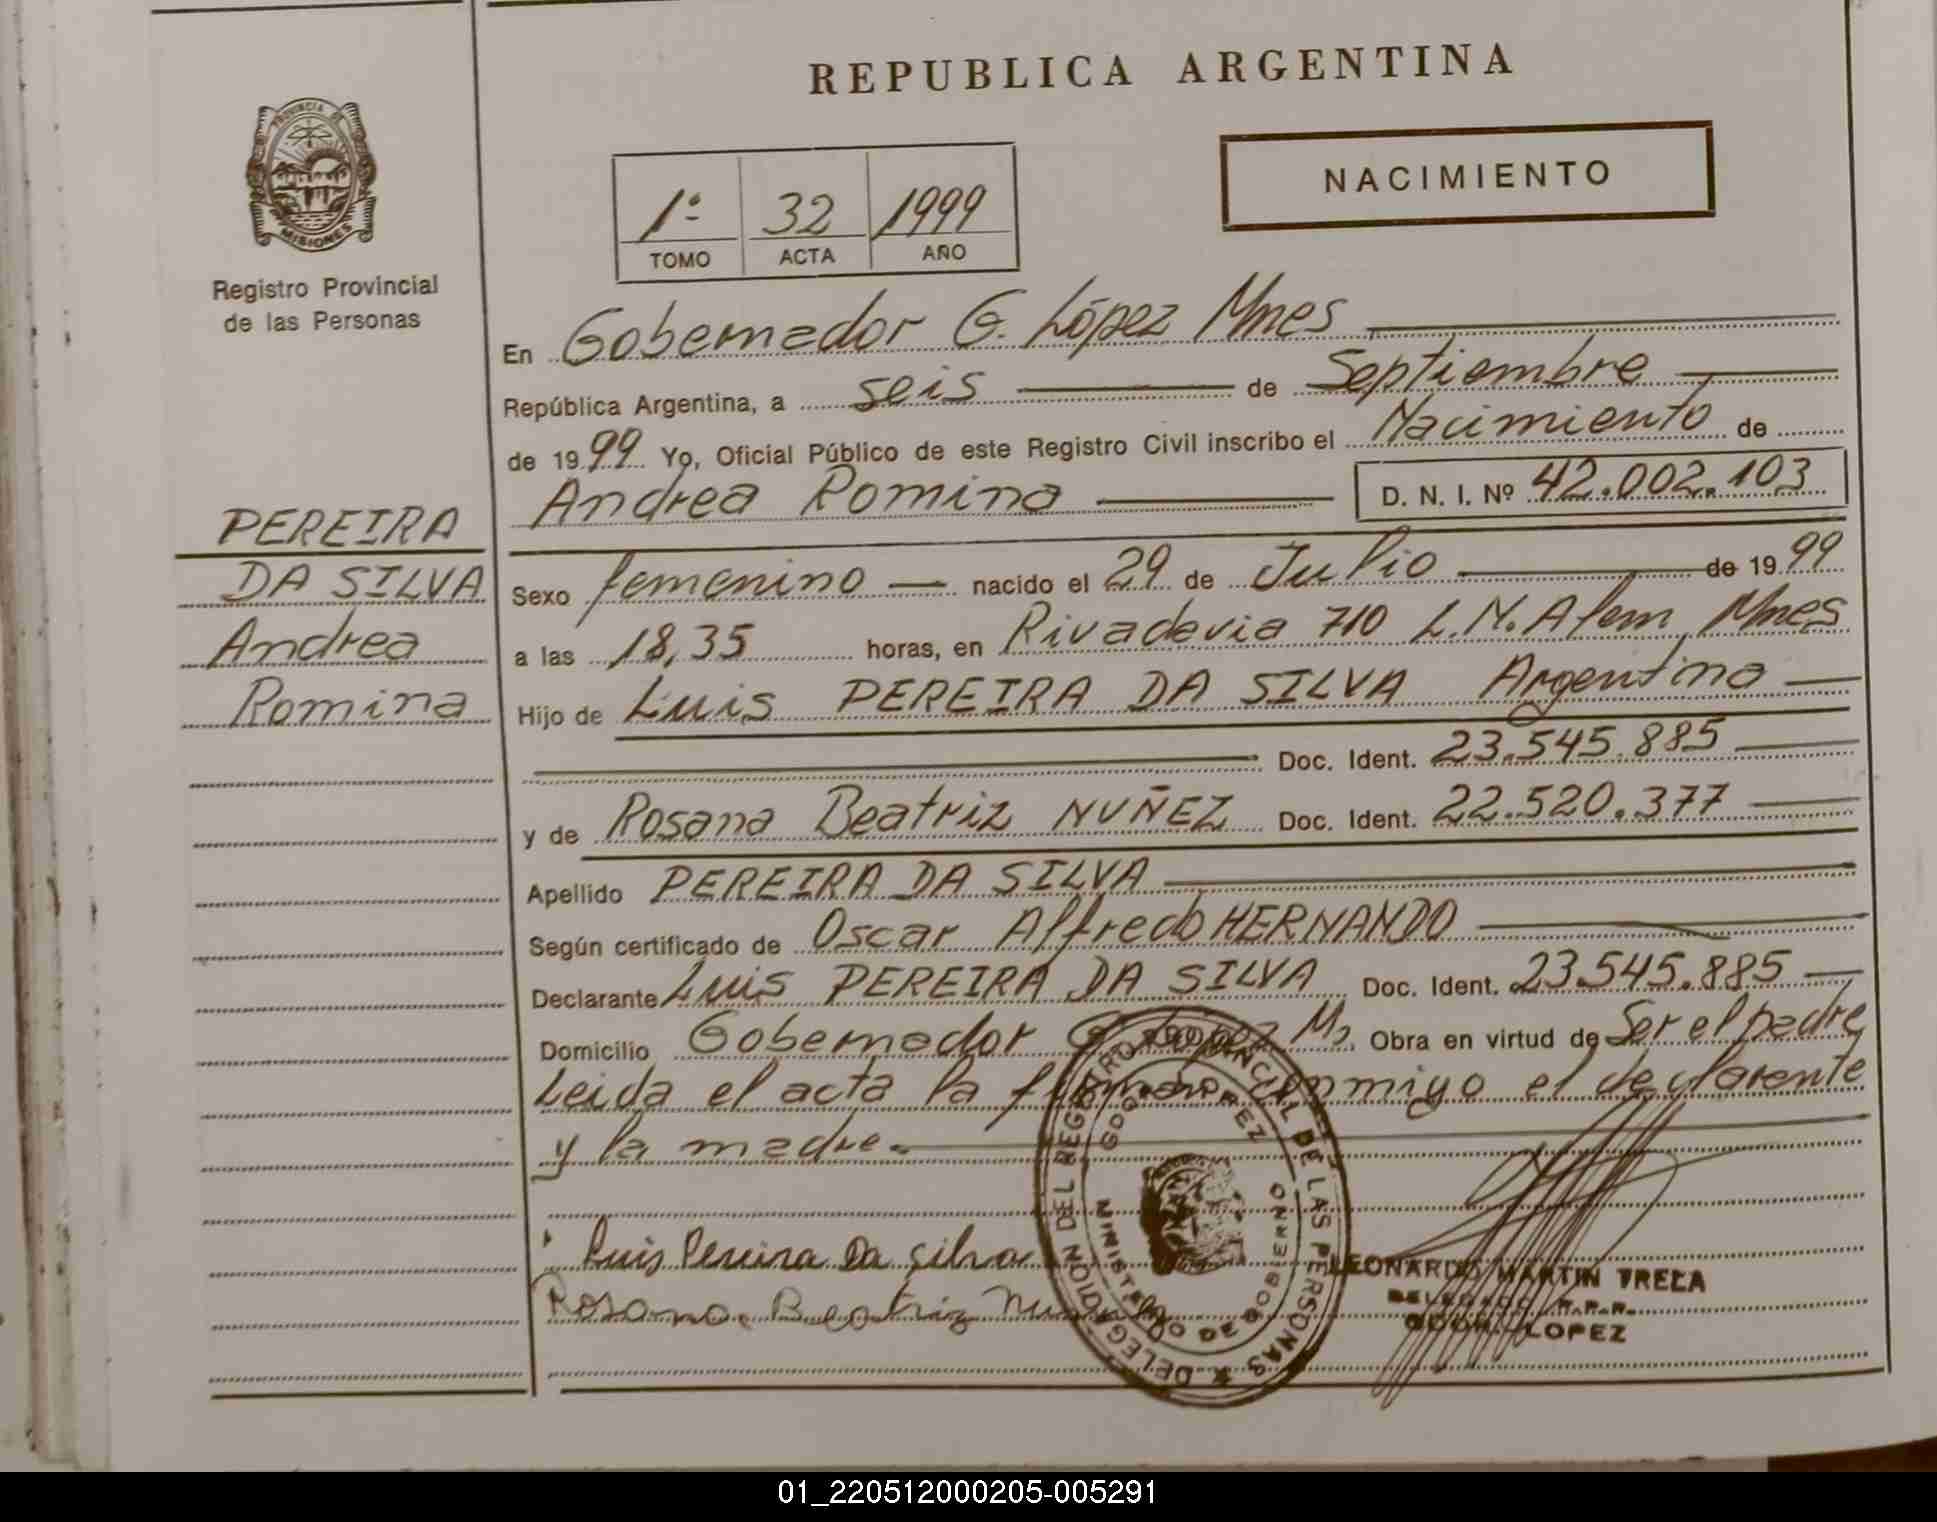 REPUBLICA ARGENTINA
PROVINCIA DE
MISIONES
Registro Provincial
de las Personas
NACIMIENTO
1º 32 1999
TOMO ACTA AÑO
En Gobernador G. López Mnes
República Argentina, a seis de Septiembre
de 1999 Yo, Oficial Público de este Registro Civil inscribo el Nacimiento de
Andrea Romina D. N. I. Nº 42.002.103
PEREIRA
DA SILVA
Andrea
Romina
Sexo femenino nacido el 29 de Julio de 1999
a las 18,35 horas, en Rivadavia 710 L.N.Alem Mnes
Hijo de Luis PEREIRA DA SILVA Argentino
Doc. Ident. 23.545.885
y de Rosana Beatriz NUÑEZ Doc. Ident. 22.520.377
Apellido PEREIRA DA SILVA
Según certificado de Oscar Alfredo HERNANDO
Declarante Luis PEREIRA DA SILVA Doc. Ident. 23.545.885
Domicilio Gobernador G. López Ms. Obra en virtud de Ser el padre
Leida el acta la firman conmigo el declarante
y la madre.
Luis Pereira Da Silva
Rosana Beatriz
DELEGACION DEL REGISTRO PROVINCIAL DE LAS PERSONAS
GDOR. LOPEZ
MINISTERIO DE GOBIERNO
LEONARDO MARTIN TRELA
DELEGADO R.P.P.
GDOR. LOPEZ
01_220512000205-005291